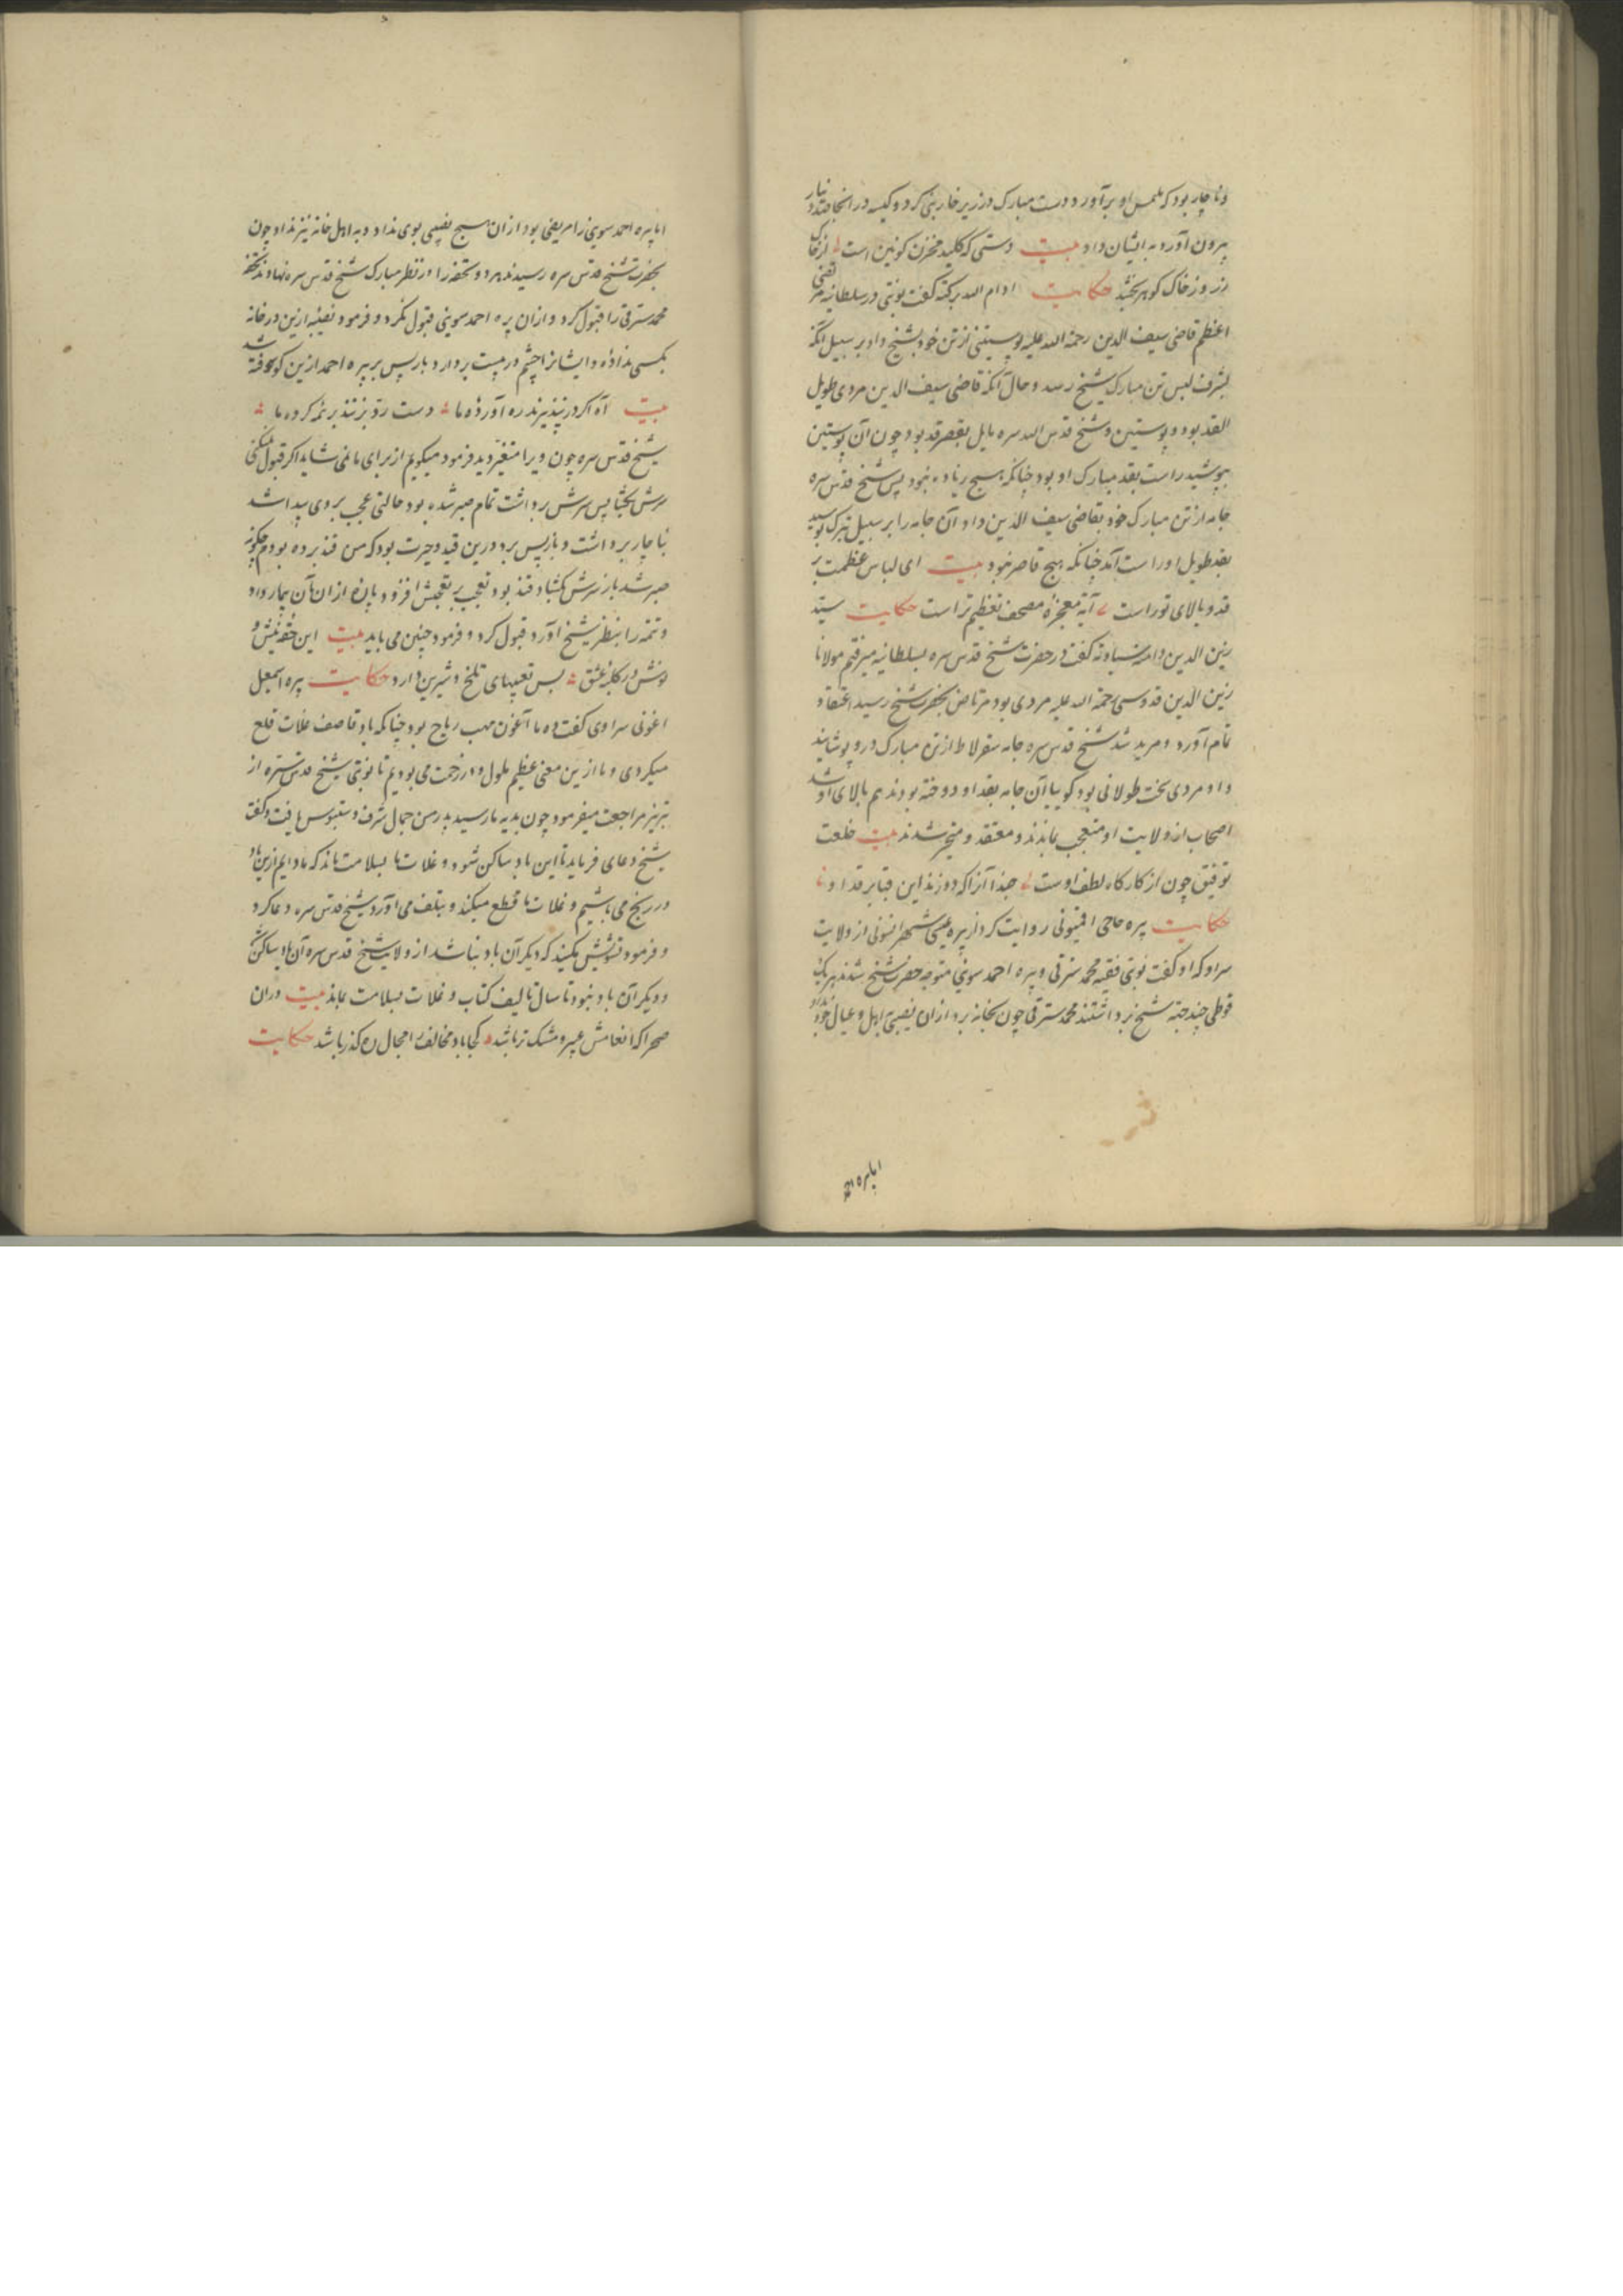 و ناچار بود که ملتمس او برآورد و دست مبارک در زیر خاربنی کرد و کیسه در آنجا صد دینار
بیرون آورد و به ایشان داد بیت دستی که کلید مخزن کونین است از خاک
زر و ز خاک کوهر بخشد حکایت ادام الله برکته کفت نوبتی در سلطانیه مرتضی
اعظم قاضی سیف الدین رحمة الله علیه پوستینی از تن خود بشیخ داد بر سبیل آنکه
بشرف لبس تن مبارک شیخ رسد و حال آنکه قاضی سیف الدین مردی طویل
القد بود و پوستین و شیخ قدس الله سره مایل بقصر قد بود چون آن پوستین
بپوشید راست بقد مبارک او بود چنانکه هیچ زیاده نبود پس شیخ قدس سره
جامه از تن مبارک خود بقاضی سیف الدین داد آن جامه را بر سبیل تبرک بپوشید
بقد طویل او راست آمد چنانکه هیچ قاصر نبود بیت ای لباس عظمت بر
قد و بالای تو راست آیة معجزه مصحف تعظیم تراست حکایت سید
زین الدین دامت سیادته کفت در حضرت شیخ قدس سره بسلطانیه میرفتم مولانا
زین الدین قدوسی رحمة الله علیه مردی بود مرتاض بحضرت شیخ رسید اعتقاد
تمام آورد و مرید شد شیخ قدس سره جامه سقرلاط از تن مبارک درو پوشانید
و او مردی سخت طولانی بود کوییا آن جامه بقد او دوخته بودند هم بالای او شد
اصحاب از ولایت او متعجب بماندند و معتقد و متحیر شدند بیت خلعت
توفیق چون از کارکاه لطف اوست حبذا آنرا که دوزند این قبا بر قد او
حکایت پیره حاجی روایت کرد از پیره عیسی از ولایت
سراو که او کفت نوبتی فقیه محمد سترقی و پیره احمد سوینی متوجه حضرت شیخ شدند هریک
قوطی چند جهة شیخ برداشتند محمد سترقی چون بخانه برد ازان نصیبی اهل و عیال خود بداد
اما پیره احمد
اما پیره احمد سوینی را مریضی بود ازان هیچ نصیبی بوی نداد و به اهل خانه نیز نداد چون
بحضرت شیخ قدس سره رسیدند هر دو تحفه را در نظر مبارک شیخ قدس سره نهادند تحفه
محمد سترقی را قبول کرد و ازان پیره احمد سوینی قبول نکرد و فرمود نصیبه ازین در خانه
بکسی نداده و ایشانرا چشم درپیست بردار و باز پس بر پیره احمد ازین کوفته شد
بیت آه اکر در نپذیرند ره آورده ما دست رد بر نهند کرده ما
شیخ قدس سره چون ویرا متغیر دید فرمود میکویم از برای ما نمی شاید اکر قبول نمیکنی
سرش بکشا پس سرش برداشت تمام صبر شده بود حالتی عجب بر وی پیدا شد
ناچار برداشت و باز پس برد و درین قید و حیرت بود که من قند برده بودم چکونه
صبر شد باز سرش بکشاد قند بود تعجب بر تعجبش افزود پاره ازان بآن بیمار داد
و تتمه را بنظر شیخ آورد قبول کرد و فرمود چنین می باید بیت این حقه نیش و
نوش در کلبه عشق بس تعبیهای تلخ و شیرین دارد حکایت پیره اسمعیل
اغونی سراوی کفت ده ما آغون مهب ریاح بود چنانکه باد قاصف غلات قلع
میکردی و ما ازین معنی عظیم ملول و در زحمت می بودیم تا نوبتی شیخ قدس سره از
تبریز مراجعت میفرمود چون بدیه ما رسید پدر من جمال شرف دستبوس یافت و کفت
شیخ دعای فرماید تا این باد ساکن شود و غلات ما بسلامت ماند که مادایم ازین باد
در رنج می باشیم و غلات ما قطع میکند و بتلف می آورد شیخ قدس سره دعا کرد
و فرمود تشویش مکنید که دیکر آن باد نباشد از ولایت شیخ قدس سره آن باد ساکن شد
و دیکر آن باد نبود تا سال تالیف کتاب و غلات بسلامت بماند بیت دران
صحرا که انعامش عبیر و مشک تر باشد کجا باد مخالف را مجال ره کذر باشد حکایت